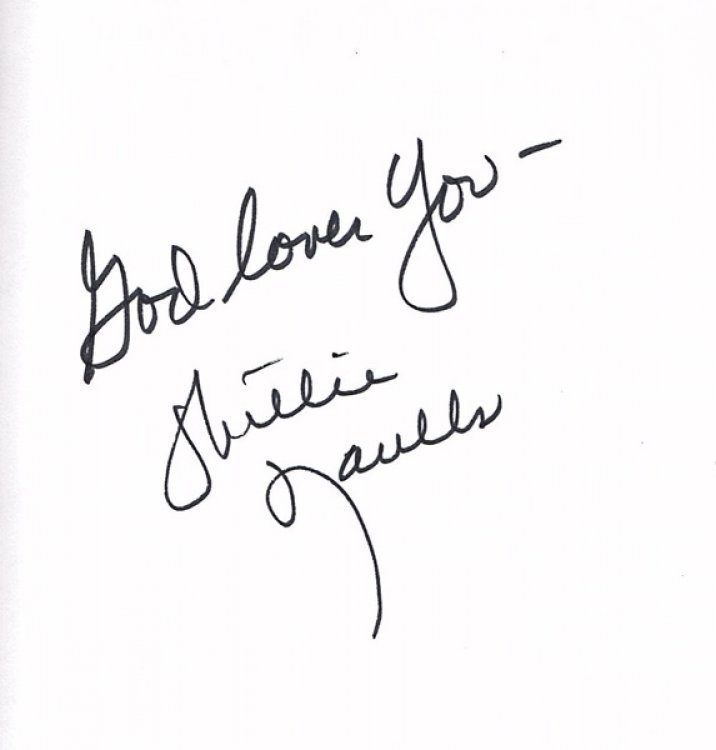 God loves You –
Willie
Naulls